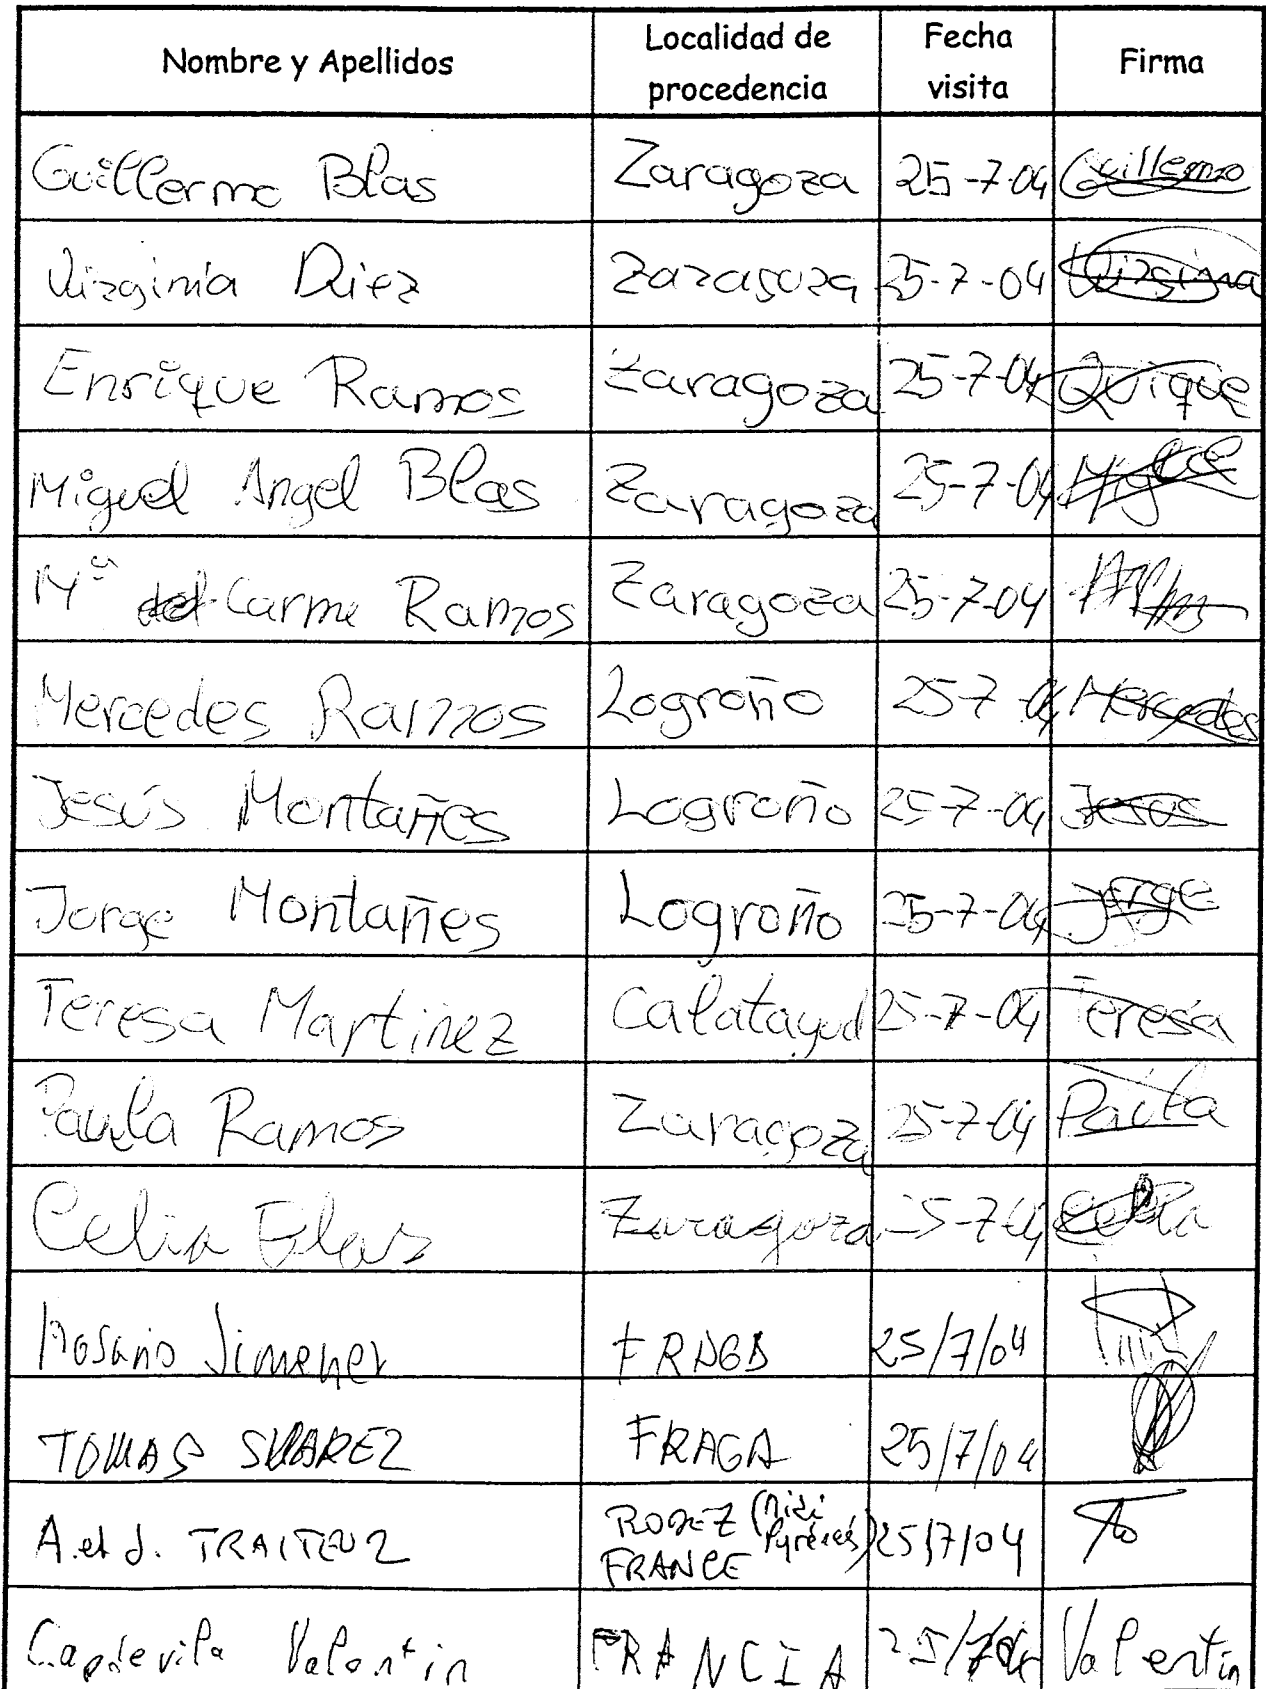 Nombre y Apellidos Localidad de procedencia Fecha visita Firma
Guillermo Blas Zaragoza 25-7-04 Guillermo
Virginia Diez Zaragoza 25-7-04 Virginia
Enrique Ramos Zaragoza 25-7-04 Quique
Miguel Angel Blas Zaragoza 25-7-04 Miguel
Mª del Carme Ramos Zaragoza 25-7-04
Mercedes Ramos Logroño 25-7-04 Mercedes
Jesús Montañes Logroño 25-7-04 Jesus
Jorge Montañes Logroño 25-7-04 Jorge
Teresa Martinez Calatayud 25-7-04 Teresa
Paula Ramos Zaragoza 25-7-04 Paula
Celia Blas Zaragoza 25-7-04 Celia
Rosario Jimenez FRAGA 25/7/04
TOMAS SUAREZ FRAGA 25/7/04
A. et J. TRAITEUR RODEZ (Midi Pyrénées) FRANCE 25/7/04
Capdevila Valentin FRANCIA 25/7/04 Valentin